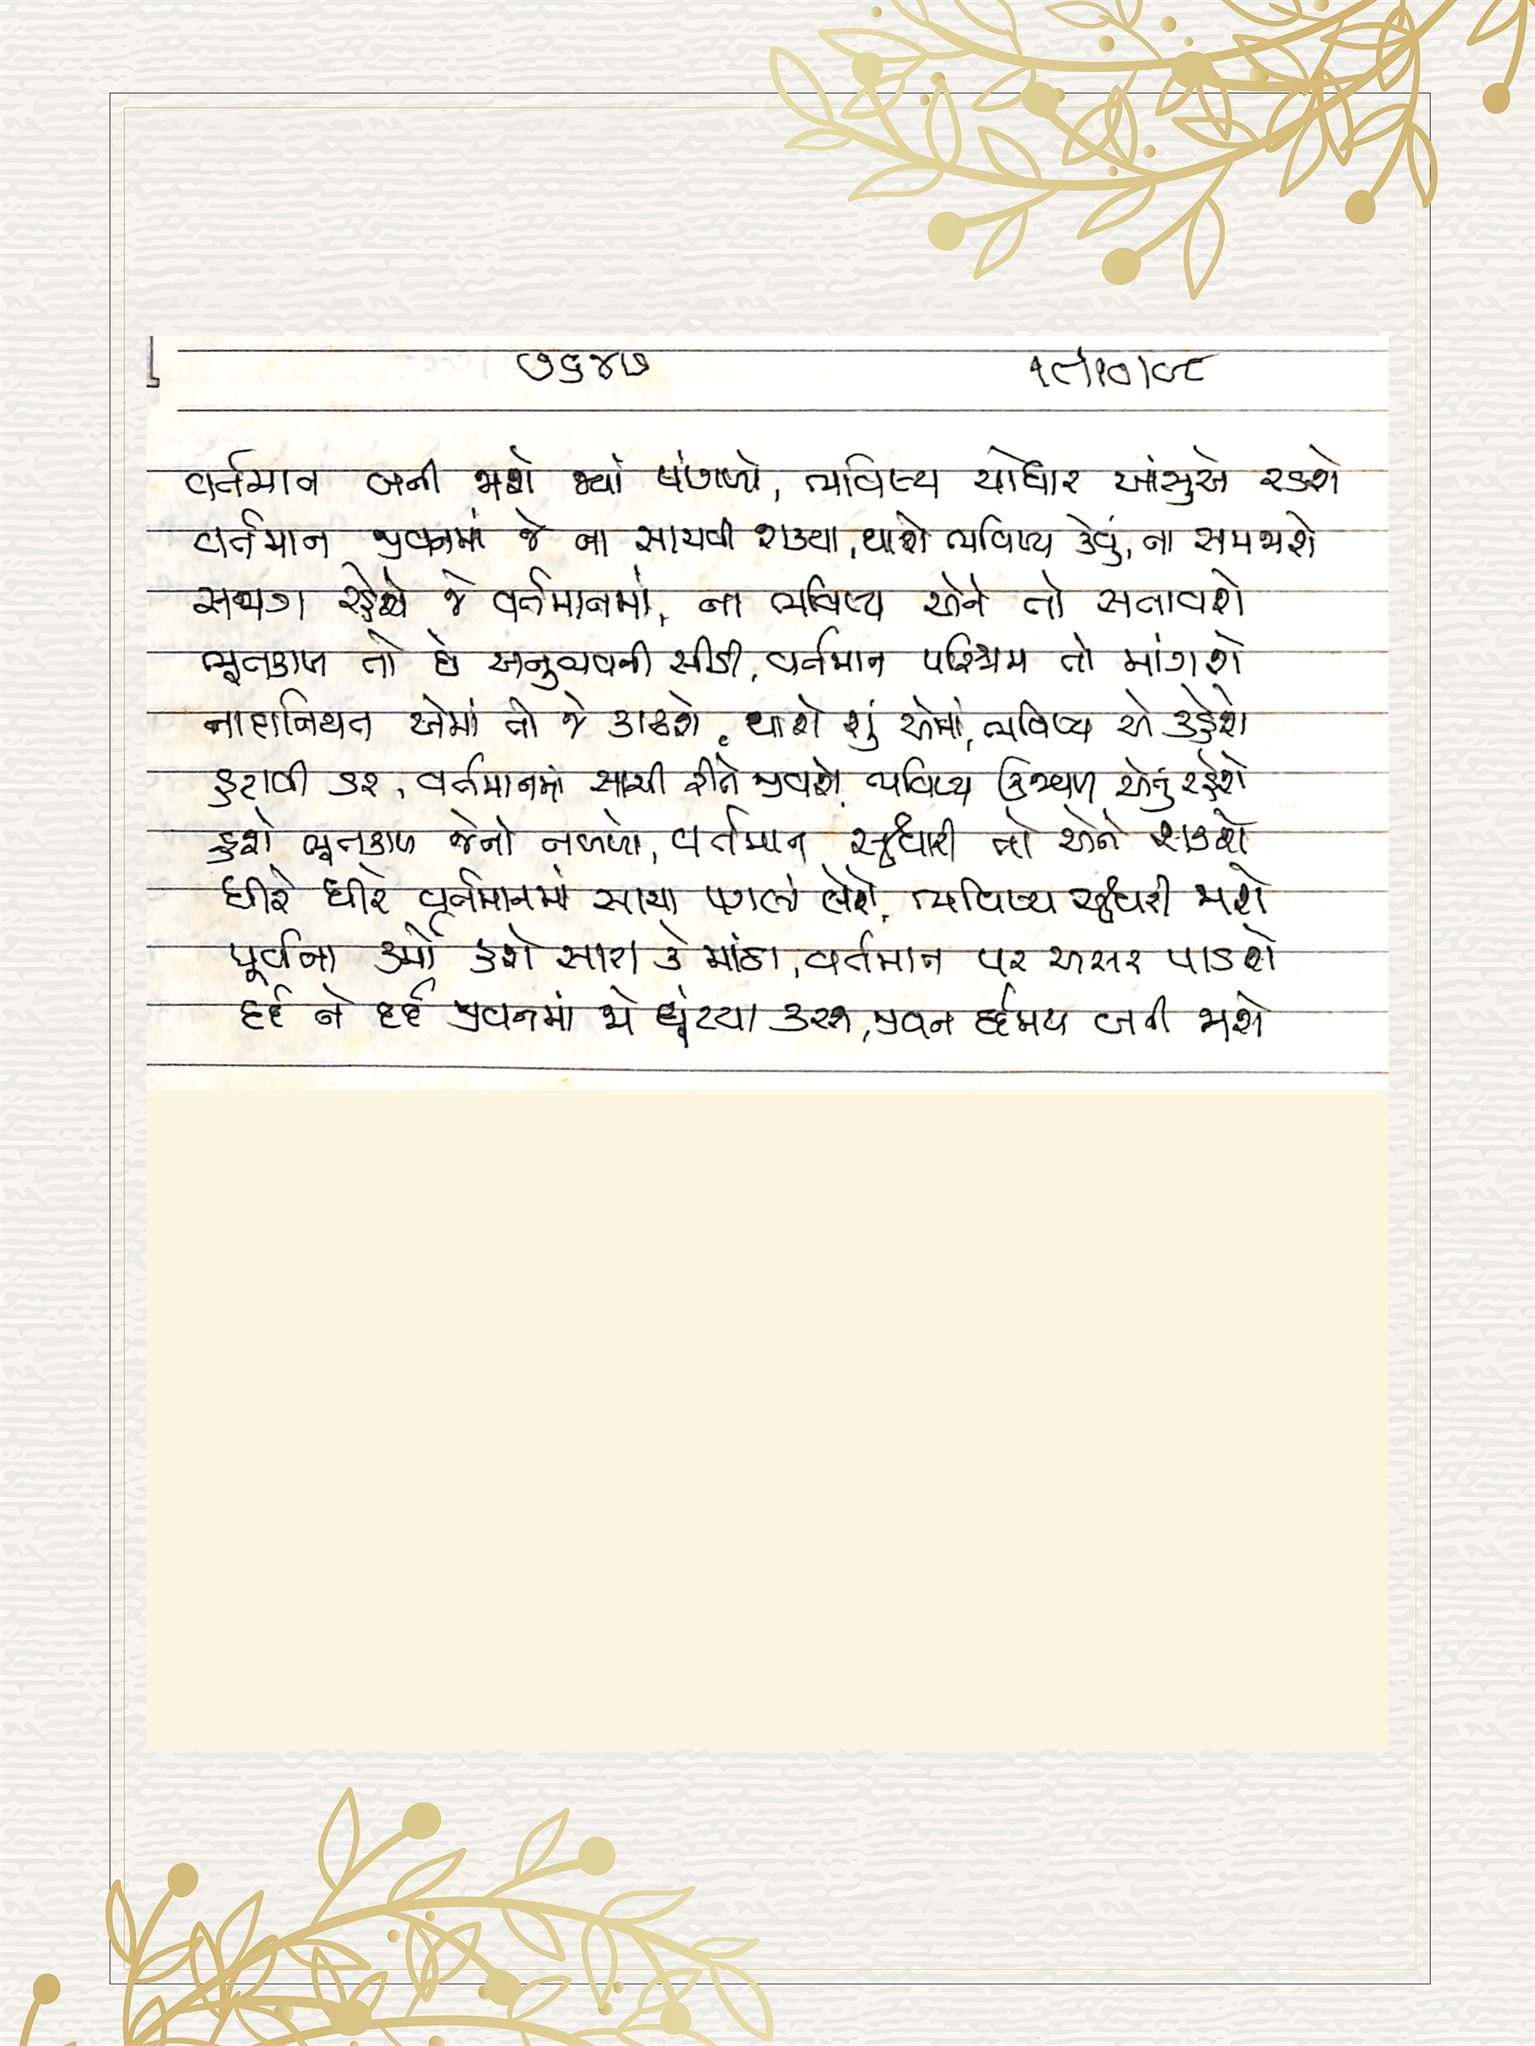 ૭૬૪૭ ૧૯/૧૦/૦૮
વર્તમાન બની જાશે જ્યાં પાંગળો, ભવિષ્ય ચોધાર આંસુએ રડશે
વર્તમાન જીવનમાં જે ના સાચવી શક્યા, થાશે ભવિષ્ય કેવું, ના સમજાશે
સજાગ રહેશે જે વર્તમાનમાં, ના ભવિષ્ય એને તો સતાવશે
ભૂતકાળ તો છે અનુભવની સીડી, વર્તમાન પરિશ્રમ તો માંગશે
નાહાનિયત એમાં તો જે કાઢશે, થાશે શું એમાં, ભવિષ્ય એ કહેશે
હટાવી ડર, વર્તમાનમાં સાચી રીતે જીવશે, ભવિષ્ય ઉજ્જવળ એનું રહેશે
હશે ભૂતકાળ જેનો નબળો, વર્તમાન સુધારી તો એને શકશે
ધીરે ધીરે વર્તમાનમાં સાચા પગલાં લેશે, ભવિષ્ય સુધરી જાશે
પૂર્વના કર્મો હશે સારા કે માઠા, વર્તમાન પર અસર પાડશે
દર્દ ને દર્દ જીવનમાં જો ઘૂંટયા કરશે, જીવન દર્દમય બની જાશે